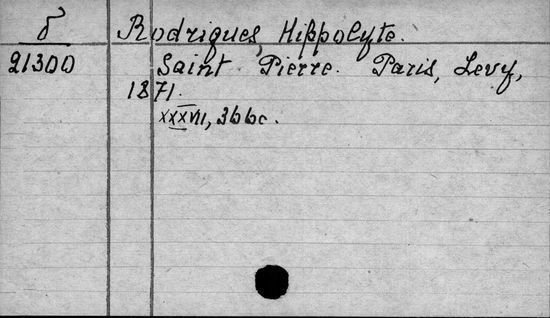 δ Rodrigues, Hippolyte.
21300 Saint Pierre. Paris, Levy,
1871.
XXXVII, 366 c.